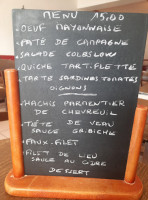 MENU 15,00
• OEUF MAYONNAISE
• PATÉ DE CAMPAGNE
• SALADE COLESLOW
• QUICHE TARTIFLETTE
• TARTE SARDINES TOMATES
OIGNONS
• HACHIS PARMENTIER
DE CHEVREUIL
• TÊTE DE VEAU
SAUCE GRIBICHE
• FAUX-FILET
• FILET DE LIEU
SAUCE AU CIDRE
DESSERT